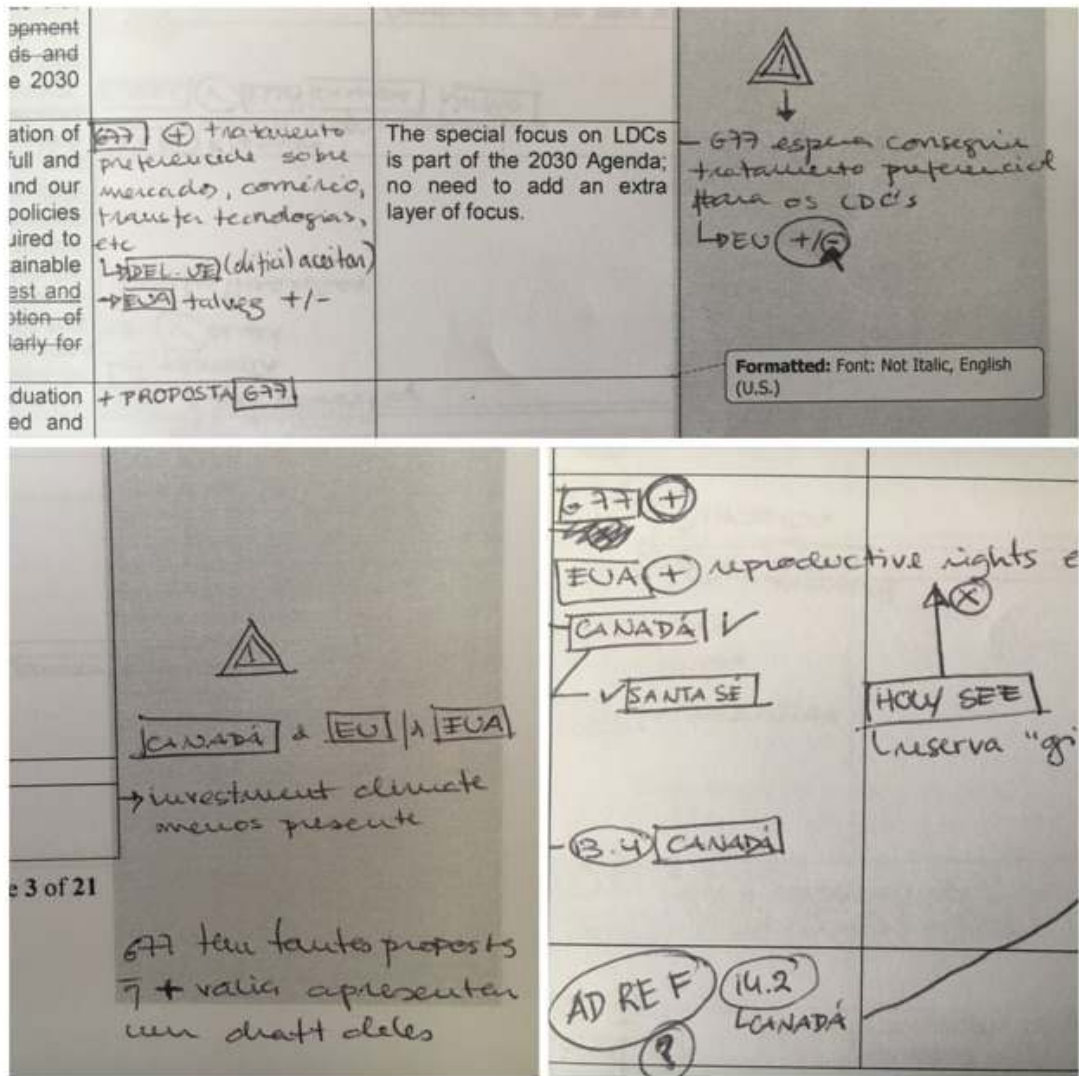 opment
ds and
e 2030
ation of
full and
and our
policies
uired to
ainable
est and
ption of
larly for
duation
ed and
G77 + tratamento
preferencial sobre
mercados, comércio,
transfer tecnologias,
etc
DEL. UE (difícil aceitar)
EUA talvez +/-
+ PROPOSTA G77
The special focus on LDCs
is part of the 2030 Agenda;
no need to add an extra
layer of focus.
- G77 espera conseguir
tratamento preferencial
para os LDC's
EU +/-
Formatted: Font: Not Italic, English
(U.S.)
CANADÁ & EU | EUA
investment climate
menos presente
e 3 of 21
G77 tem tantes proposts
+ valia apresentar
um draft deles
G77 +
EUA + reproductive rights e
CANADÁ
SANTA SÉ
X
HOLY SEE
reserva "gr
13.4 CANADÁ
AD REF 14.2
CANADÁ
?